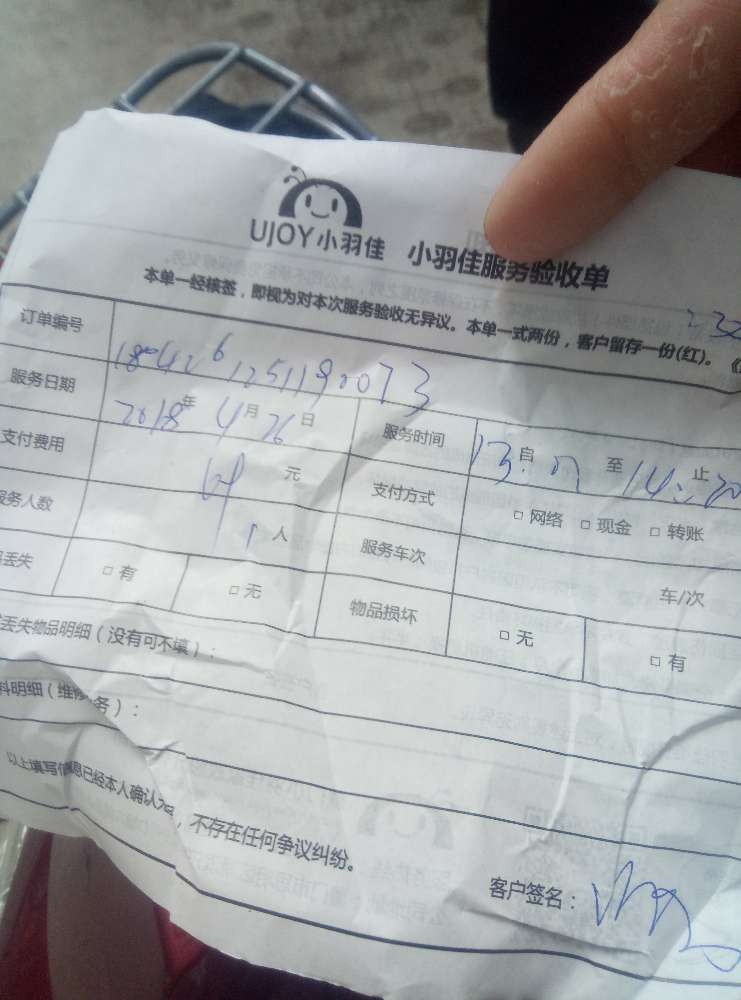 UJOY小羽佳 小羽佳服务验收单
本单一经核签，即视为对本次服务验收无异议。本单一式两份，客户留存一份(红)。
订单编号
服务日期 2018年4月26日 服务时间 13: 自 至 14:20 止
支付费用 元 支付方式 □ 网络 □ 现金 □ 转账
服务人数 1 人 服务车次 车/次
丢失 □ 有 □ 无 物品损坏 □ 无 □ 有
丢失物品明细（没有可不填）：
料明细（维修 务）：
以上填写信息已经本人确认 ，不存在任何争议纠纷。
客户签名：